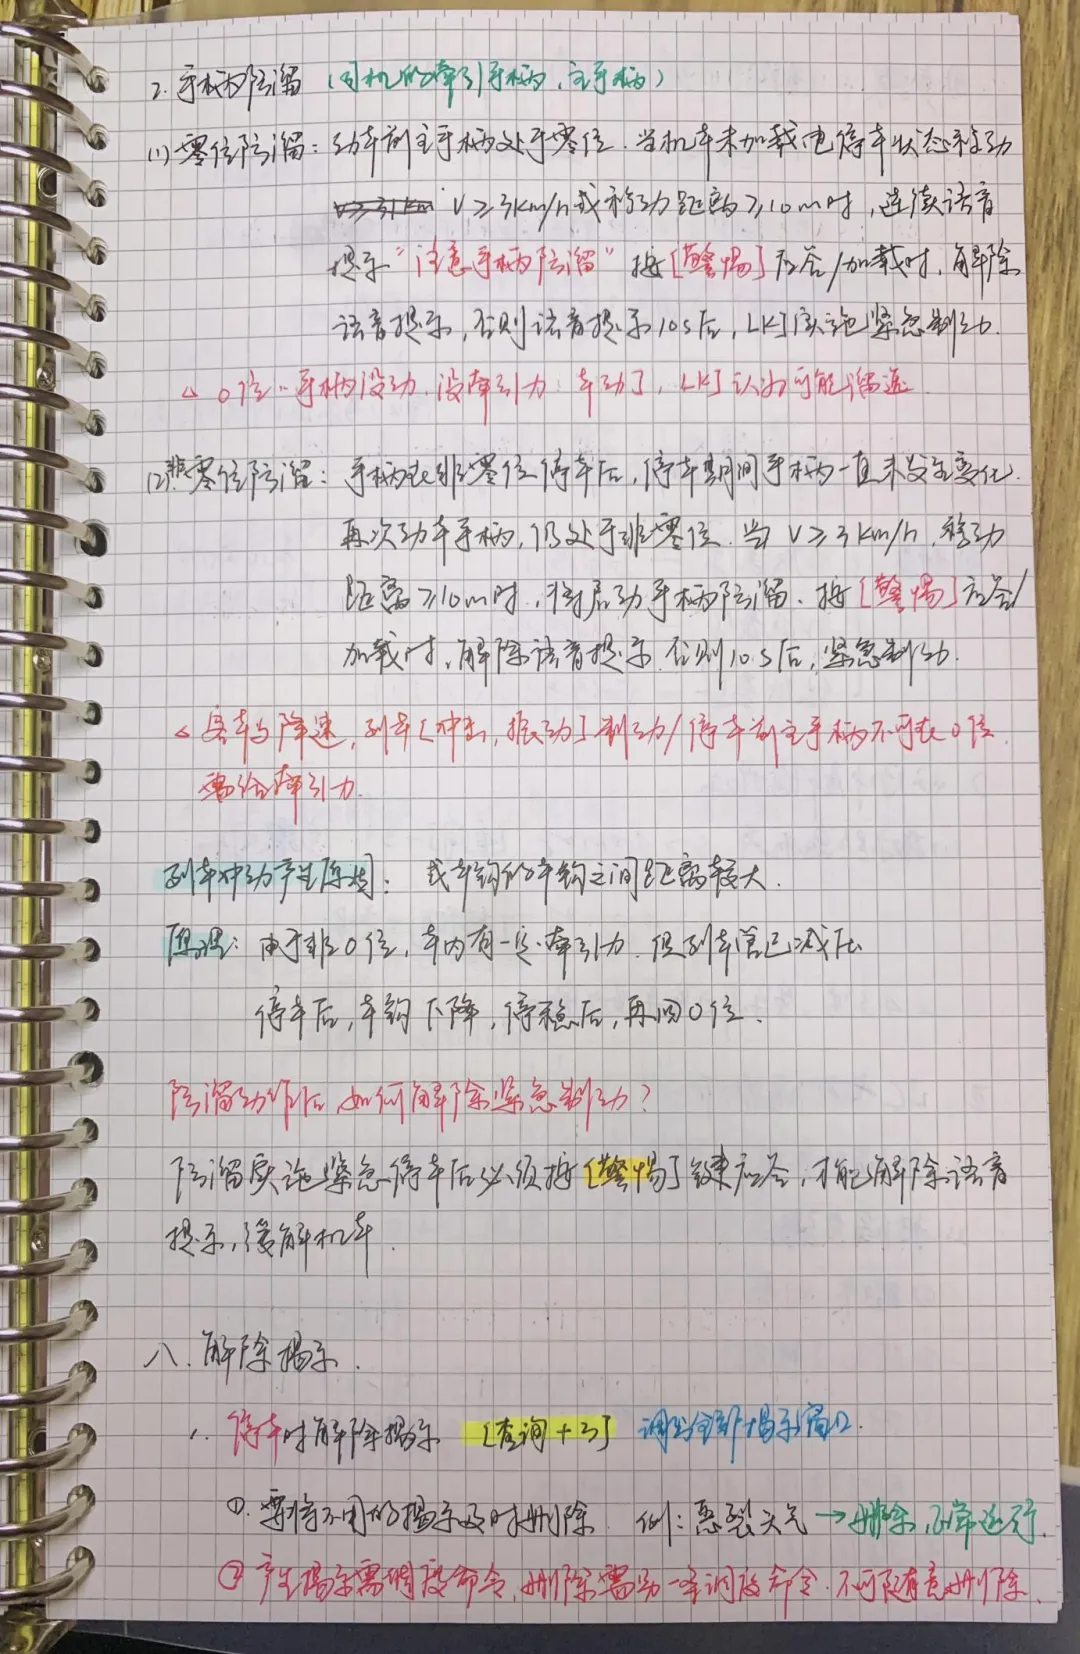 2. 手柄防溜（司机的牵引手柄，主手柄）
(1) 零位防溜：动车前主手柄处于零位. 当机车未加载由停车状态移动
V≥3km/h或移动距离≥10m时，连续语音
提示“注意手柄防溜” 按[警惕]应答/加载时，解除
语音提示，否则语音提示10s后，LKJ实施紧急制动.
△ 0位：手柄没动，没牵引力：车动了，LKJ认为可能溜逸
(2)非零位防溜：手柄在非零位停车后，停车期间手柄一直未发生变化.
再次动车手柄，仍处于非零位. 当 V≥3km/h，移动
距离≥10m时，将启动手柄防溜. 按[警惕]应答/
加载时，解除语音提示. 否则10s后，紧急制动.
△ 客车与降速，列车[冲击，振动]制动/停车前主手柄不可在0位.
需给牵引力.
列车冲动产生原因： 车钩的车钩之间距离较大.
原理：由于非0位，车内有一定牵引力. 但列车管已减压
停车后，车钩下降，停稳后，再回0位.
防溜动作后，如何解除紧急制动？
防溜实施紧急停车后必须按[警惕]键应答，才能解除语音
提示，缓解机车.
八. 解除揭示.
1. 停车时解除揭示 [查询+3] 调出全部揭示窗口.
①. 要将不用的揭示及时删除. 例：恶裂天气→删除，正常运行.
② 产生揭示需调度命令，删除需另一条调度命令. 不可随意删除.